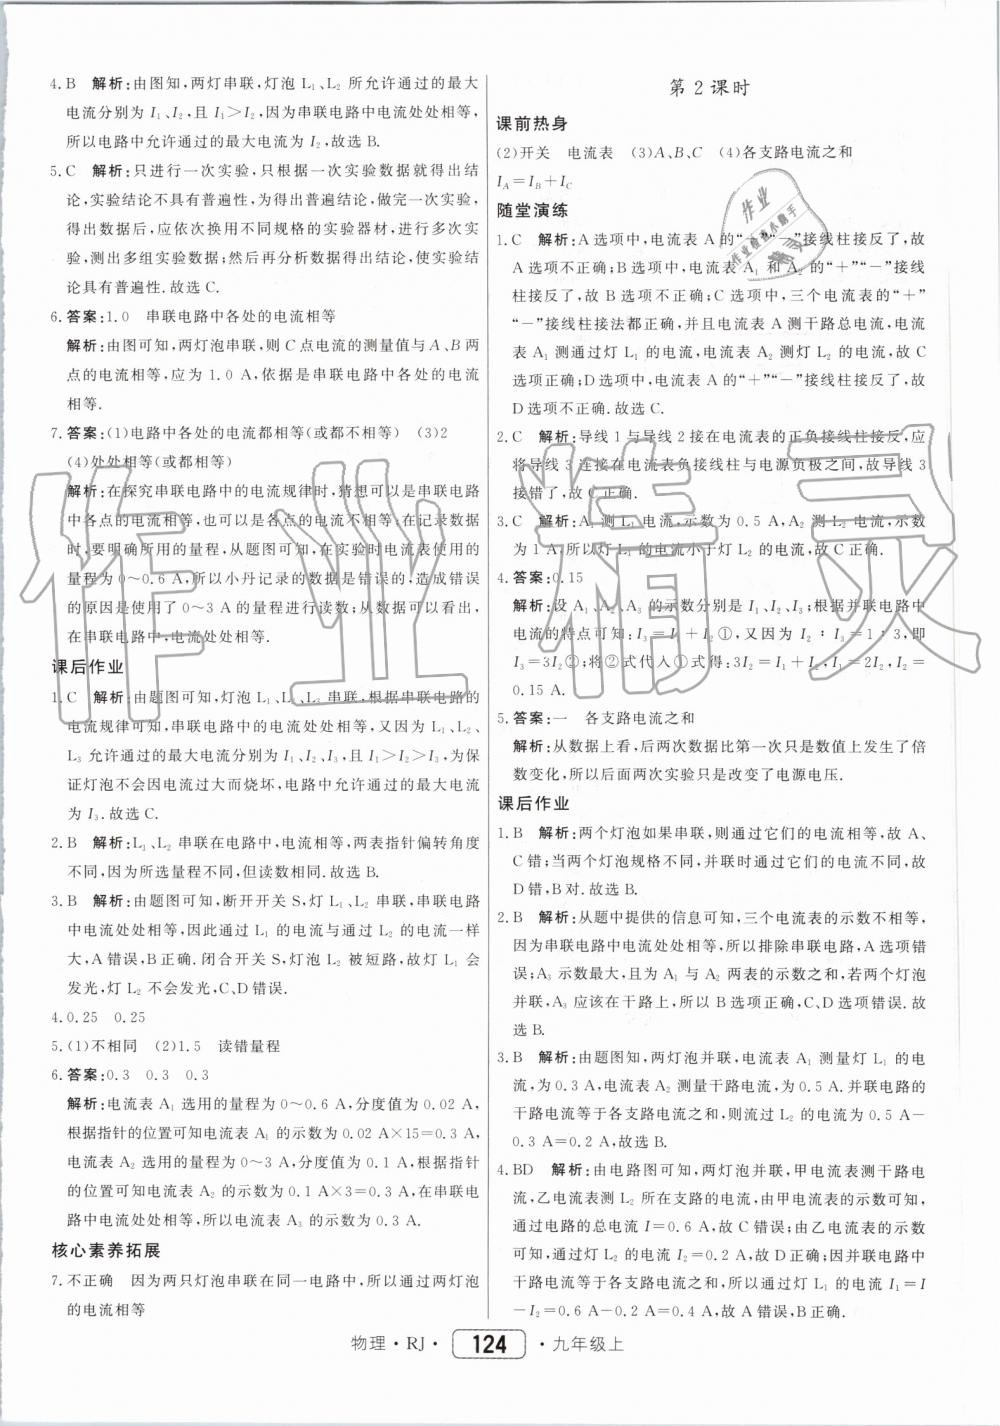 4. B　解析:由图知,两灯串联,灯泡 L₁、L₂ 所允许通过的最大
电流分别为 I₁、I₂,且 I₁>I₂,因为串联电路中电流处处相等,
所以电路中允许通过的最大电流为 I₂,故选 B.
5. C　解析:只进行一次实验,只根据实验数据就得出结
论,实验结论不具有普遍性,为得出普遍性,做完一次实验,
得出数据后,应依次换用不同规格的实验器材,进行多次实
验,测出多组实验数据,然后再分析数据得出结论,实验结
论具有普遍性.故选 C.
6. 答案:1.0　串联电路中各处的电流相等
解析:由图可知,两灯泡串联,则 C 点电流的测量值与 A、B 两
点的电流相等,应为 1.0 A,依据是串联电路中各处的电流
相等.
7. 答案:(1)电路中各处的电流都相等(或都不相等)　(3)2
(4)处处相等(或都相等)
解析:在探究串联电路中的电流规律时,猜想可以是串联电路
中各点的电流相等,也可以是各点的电流不相等.在记录数据
时,要明确所用的量程,从题图可知,在实验时电流表使用的
量程为 0～0.6 A,所以小丹记录的数据是错误的,造成错误
的原因是使用了 0～3 A 的量程进行读数;从数据可以看出,
在串联电路中,电流处处相等.
课后作业
1. C　解析:由题图可知,灯泡 L₁、L₂、L₃ 串联,根据串联电路的
电流规律可知,串联电路中的电流处处相等,又因为 L₁、L₂、
L₃ 允许通过的最大电流分别为 I₁、I₂、I₃,且 I₁>I₂>I₃,为保
证灯泡不会因电流过大而烧坏,电路中允许通过的最大电流
为 I₃.故选 C.
2. B　解析:L₁、L₂ 串联在电路中,电流相等,两表指针偏转角度
不同,因为所选量程不同,但读数相同.故选 B.
3. B　解析:由题图可知,断开开关 S,灯 L₁、L₂ 串联,串联电路
中电流处处相等,因此通过 L₁ 的电流与通过 L₂ 的电流一样
大,A 错误,B 正确.闭合开关 S,灯泡 L₂ 被短路,故灯 L₁ 会
发光,灯 L₂ 不会发光,C、D 错误.
4. 0.25　0.25
5. (1)不相同　(2)1.5　读错量程
6. 答案:0.3　0.3　0.3
解析:电流表 A₁ 选用的量程为 0～0.6 A,分度值为 0.02 A,
根据指针的位置可知电流表 A₁ 的示数为 0.02 A×15=0.3 A,
电流表 A₂ 选用的量程为 0～3 A,分度值为 0.1 A,根据指针
的位置可知电流表 A₂ 的示数为 0.1 A×3=0.3 A,在串联电
路中电流处处相等,所以电流表 A₃ 的示数为 0.3 A.
核心素养拓展
7. 不正确　因为两只灯泡串联在同一电路中,所以通过两灯泡
的电流相等
第 2 课时
课前热身
(2)开关　电流表　(3)A、B、C　(4)各支路电流之和
I_A=I_B+I_C
随堂演练
1. C　解析:A 选项中,电流表 A 的“+”“-”接线柱接反了,故
A 选项不正确;B 选项中,电流表 A₁ 和 A₂ 的“+”“-”接线
柱接反了,故 B 选项不正确;C 选项中,三个电流表的“+”
“-”接线柱接法都正确,并且电流表 A 测干路总电流,电流
表 A₁ 测通过灯 L₁ 的电流,电流表 A₂ 测灯 L₂ 的电流,故 C 选
项正确;D 选项中,电流表 A 的“+”“-”接线柱接反了,故
D 选项不正确.故选 C.
2. C　解析:导线 1 与导线 2 接在电流表的正负接线柱接反,应
将导线 3 连接在电流表负接线柱与电源负极之间,故导线 3
接错了,故 C 正确.
3. C　解析:A₁ 测 L₁ 电流,示数为 0.5 A,A₂ 测 L₂ 电流,示数
为 1 A,所以灯 L₁ 的电流小于灯 L₂ 的电流,故选 C.
4. 答案:0.15
解析:设 A₁、A₂、A₃ 的示数分别是 I₁、I₂、I₃;根据并联电路中
电流的特点可知:I₃=I₁+I₂①,又因为 I₂∶I₃=1∶3,即
I₃=3I₂②;将②式代入①式得:3I₂=I₁+I₂,I₁=2I₂,I₂=
0.15 A.
5. 答案:一　各支路电流之和
解析:从数据上看,后两次数据比第一次只是数值上发生了倍
数变化,所以后面两次实验只是改变了电源电压.
课后作业
1. B　解析:两个灯泡如果串联,则通过它们的电流相等,故 A、
C 错;当两个灯泡规格不同,并联时通过它们的电流不同,故
D 错,B 对.故选 B.
2. B　解析:从题中提供的信息可知,三个电流表的示数不相等,
因为串联电路中电流处处相等,所以排除串联电路,A 选项错
误;A₃ 示数最大,且为 A₁ 与 A₂ 两表的示数之和,若两个灯泡
并联,A₃ 应该在干路上,所以 B 选项正确,C、D 选项错误.故
选 B.
3. B　解析:由题图知,两灯泡并联,电流表 A₁ 测量灯 L₁ 的电
流,为 0.3 A,电流表 A₂ 测量干路电流,为 0.5 A.并联电路的
干路电流等于各支路电流之和,则流过 L₂ 的电流为 0.5 A-
0.3 A=0.2 A,故选 B.
4. BD　解析:由电路图可知,两灯泡并联,甲电流表测干路电
流,乙电流表测 L₂ 所在支路的电流,由甲电流表的示数可知,
通过电路的总电流 I=0.6 A,故 C 错误;由乙电流表的示数
可知,通过灯 L₂ 的电流 I₂=0.2 A,故 D 正确;因并联电路中
干路电流等于各支路电流之和,所以通过灯 L₁ 的电流 I₁=I
-I₂=0.6 A-0.2 A=0.4 A,故 A 错误,B 正确.
物理·RJ· 124 ·九年级上
作业精灵
作业
作业检查小助手